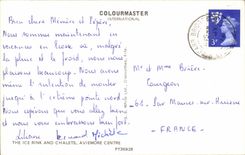 COLOURMASTER
INTERNATIONAL
Bien chers Mémère et Pépère,
Nous sommes maintenant en
vacances en Ecosse où, malgré
la pluie et le froid, nous nous
plaisons beaucoup. Nous avons
eu l'intention de monter
jusqu'à l'extrême pointe nord.
Nous espérons que vous allez bien
et nous vous embrassons
Liliane Bernard Michèle
3P
M. et Mme
Courgeon
68
FRANCE
THE ICE RINK AND CHALETS, AVIEMORE CENTRE
PT36928